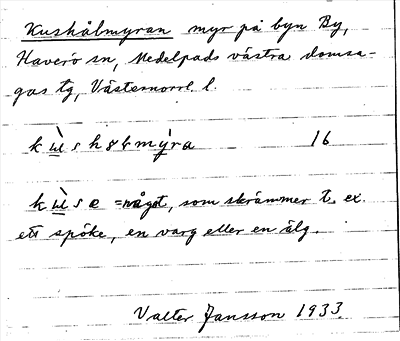 Kushålmyran myr på byn By,
Haverö sn, Medelpads västra domsa-
gas tg, Västernorrl. l.
kùshålmýra 16
kùse = något, som skrämmer t. ex.
ett spöke, en varg eller en älg.
Valter Jansson 1933